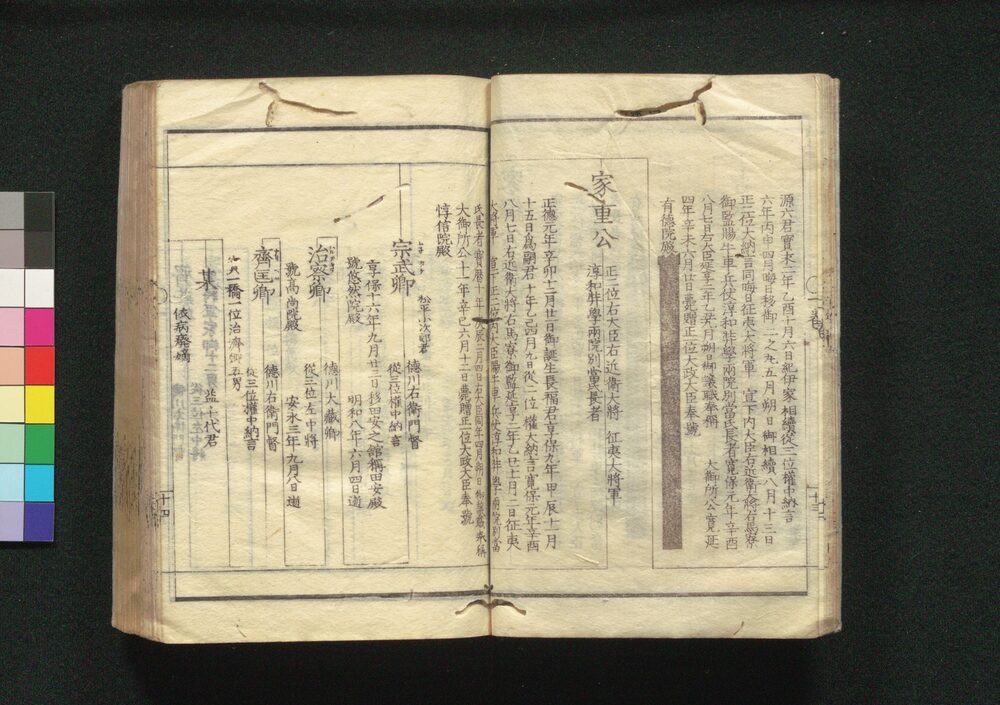 源六君寶永二年乙酉十月六日紀伊家相續從三位權中納言
六年丙申四月晦日移御二之丸五月朔日御相續八月十三日
正二位大納言同晦日征夷大將軍 宣下内大臣右近衛大將右馬寮
御監賜牛車兵仗淳和奘學兩院別當氏長者寛保元年辛酉
八月七日右大臣延享二年乙丑九月朔日御讓職奉稱 大御所公寛延
四年辛未六月廿日薨贈正一位大政大臣奉號
有德院殿
家重公
正二位右大臣右近衛大將 征夷大將軍
淳和奘學兩院別當氏長者
正德元年辛卯十二月廿日御誕生長福君享保九年甲辰十一月
十五日為嗣君十年乙巳四月九日從二位權大納言寛保元年辛酉
八月七日右近衛大將右馬寮御監延享二年乙丑十一月二日征夷
大將軍 宣下正二位内大臣賜牛車兵仗淳和奘學兩院別當
氏長者寶曆十年庚辰二月四日右大臣同年四月朔日御讓職奉稱
大御所公十一年辛巳六月十二日薨贈正一位大政大臣奉號
惇信院殿
宗武卿
松平小次郎君
德川右衛門督
從三位權中納言
享保十六年九月廿三日移田安之館稱田安殿
號悠然院殿 明和八年六月四日逝
治察卿
德川大藏卿
從三位左中將
號高尚院殿 安永三年九月八日逝
齊匡卿
德川右衛門督
從三位權中納言
一橋一位治濟卿五男
某
益千代君
依病廢嫡
十三
十四